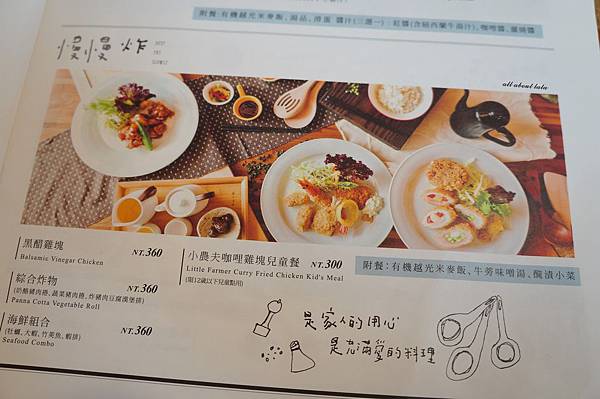 附餐:有機越光米麥飯、湯品、滑蛋 醬汁(三選一):紅醬(含紐西蘭牛油汁)、咖哩醬、鹽燒醬
慢慢炸
all about lala
黑醋雞塊 NT.360
Balsamic Vinegar Chicken
綜合炸物 NT.360
(奶酪豬肉捲、蔬菜豬肉捲、炸豬肉豆腐漢堡排)
Panna Cotta Vegetable Roll
海鮮組合 NT.360
(牡蠣、大蝦、竹筴魚、蝦排)
Seafood Combo
小農夫咖哩雞塊兒童餐 NT.300
Little Farmer Curry Fried Chicken Kid's Meal
(限12歲以下兒童點用)
附餐:有機越光米麥飯、牛蒡味噌湯、醃漬小菜
是家人的用心
是充滿愛的料理